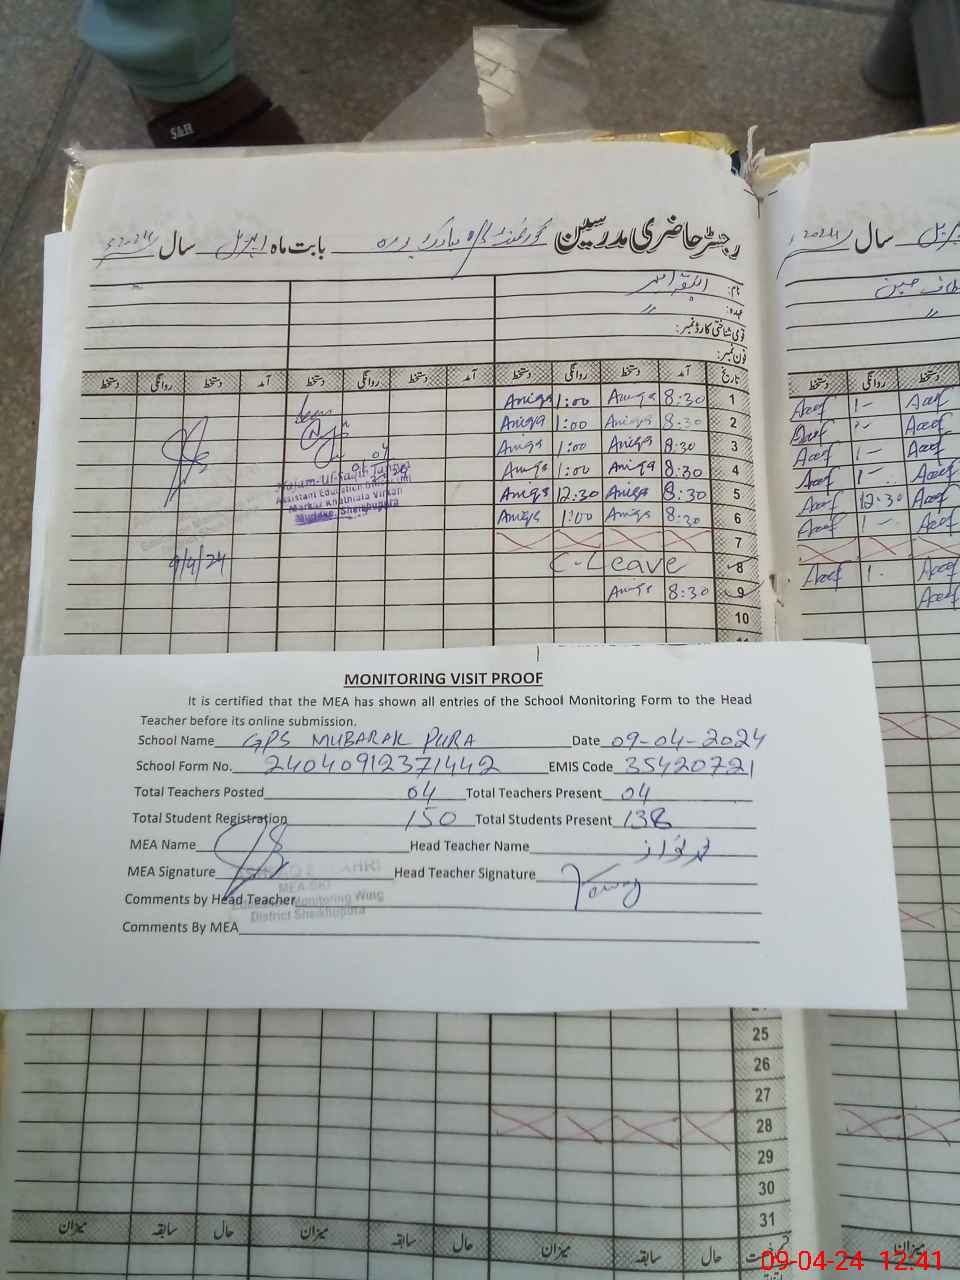 S&H
رجسٹر حاضری مدرسین بابت ماہ اپریل سال 2024ء
سال 2024
نام:
عہدہ: 〃
قومی شناختی کارڈ نمبر:
فون نمبر:
تاریخ آمد دستخط روانگی دستخط آمد دستخط روانگی دستخط آمد دستخط روانگی دستخط
دستخط روانگی دستخط
1 8:30 Aniqa 1:00 Aniqa
2 8:30 Aniqa 1:00 Aniqa
3 8:30 Aniqa 1:00 Aniqa
4 8:30 Aniqa 1:00 Aniqa
5 8:30 Aniqa 12:30 Aniqa
6 8:30 Aniqa 1:00 Aniqa
7
8 C-Leave
9 8:30 Aniqa
10
Asef 1- Asef
Asef 1- Asef
Asef 1- Asef
Asef 1- Asef
Asef 12:30 Asef
Asef 1- Asef
Asef 1- Asef
Asef
Assistant Education Officer
Markaz Khathiala Virkan
Muridke, Sheikhupura
9/4/24
MONITORING VISIT PROOF
It is certified that the MEA has shown all entries of the School Monitoring Form to the Head
Teacher before its online submission.
School Name GPS MUBARAK PURA Date 09-04-2024
School Form No. 24040912371442 EMIS Code 35420721
Total Teachers Posted 04 Total Teachers Present 04
Total Student Registration 150 Total Students Present 138
MEA Name Head Teacher Name
MEA Signature Head Teacher Signature
Comments by Head Teacher
Comments By MEA
Monitoring Wing
District Sheikhupura
25
26
27
28
29
30
31
حال سابقہ میزان حال سابقہ میزان حال سابقہ میزان
میزان
09-04-24 12:41